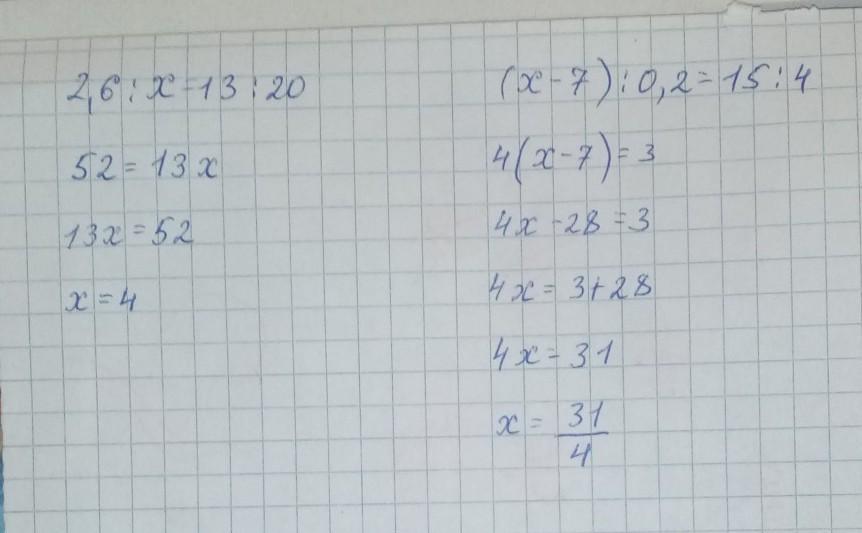 2,6:x=13:20
52=13x
13x=52
x=4
(x-7):0,2=15:4
4(x-7)=3
4x-28=3
4x=3+28
4x=31
x=31/4